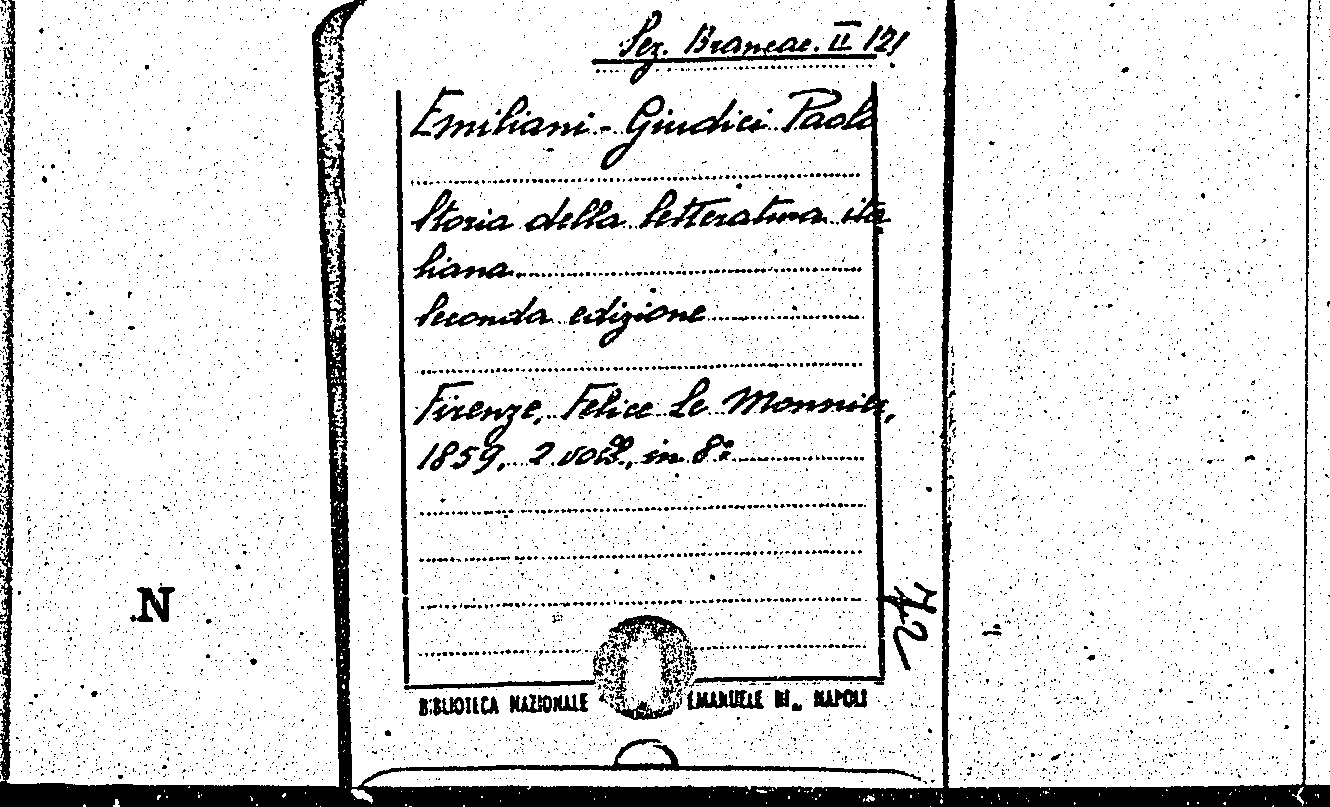 Sez. Brancac. II 121
Emiliani-Giudici Paolo
Storia della letteratura ita
liana.
Seconda edizione
Firenze, Felice Le Monnier,
1859, 2 voll., in 8°
N
BIBLIOTECA NAZIONALE EMANUELE III. NAPOLI